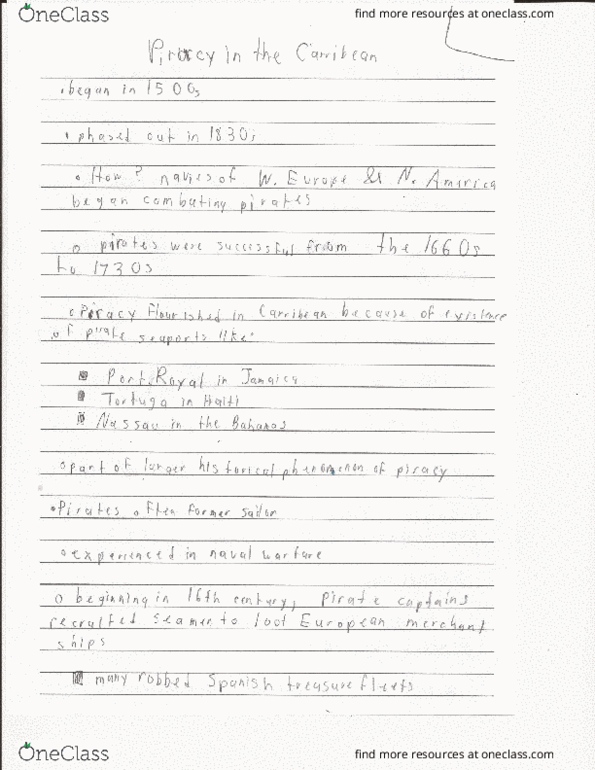 OneClass
find more resources at oneclass.com
Piracy in the Carribean
• began in 1500s
• phased out in 1830s
• How? navies of W. Europe & N. America
began combating pirates
o pirates were successful from the 1660s
to 1730s
o Piracy flourished in Carribean because of existence
of pirate seaports like:
▪ Port Royal in Jamaica
▪ Tortuga in Haiti
▪ Nassau in the Bahamas
o part of larger historical phenomenon of piracy
• Pirates often former sailors
o experienced in naval warfare
o beginning in 16th century, pirate captains
recruited seamen to loot European merchant
ships
▪ many robbed Spanish treasure fleets
OneClass
find more resources at oneclass.com